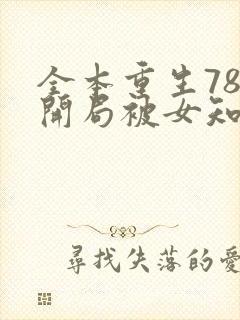 全本重生78
開局被女知
尋找失落的愛